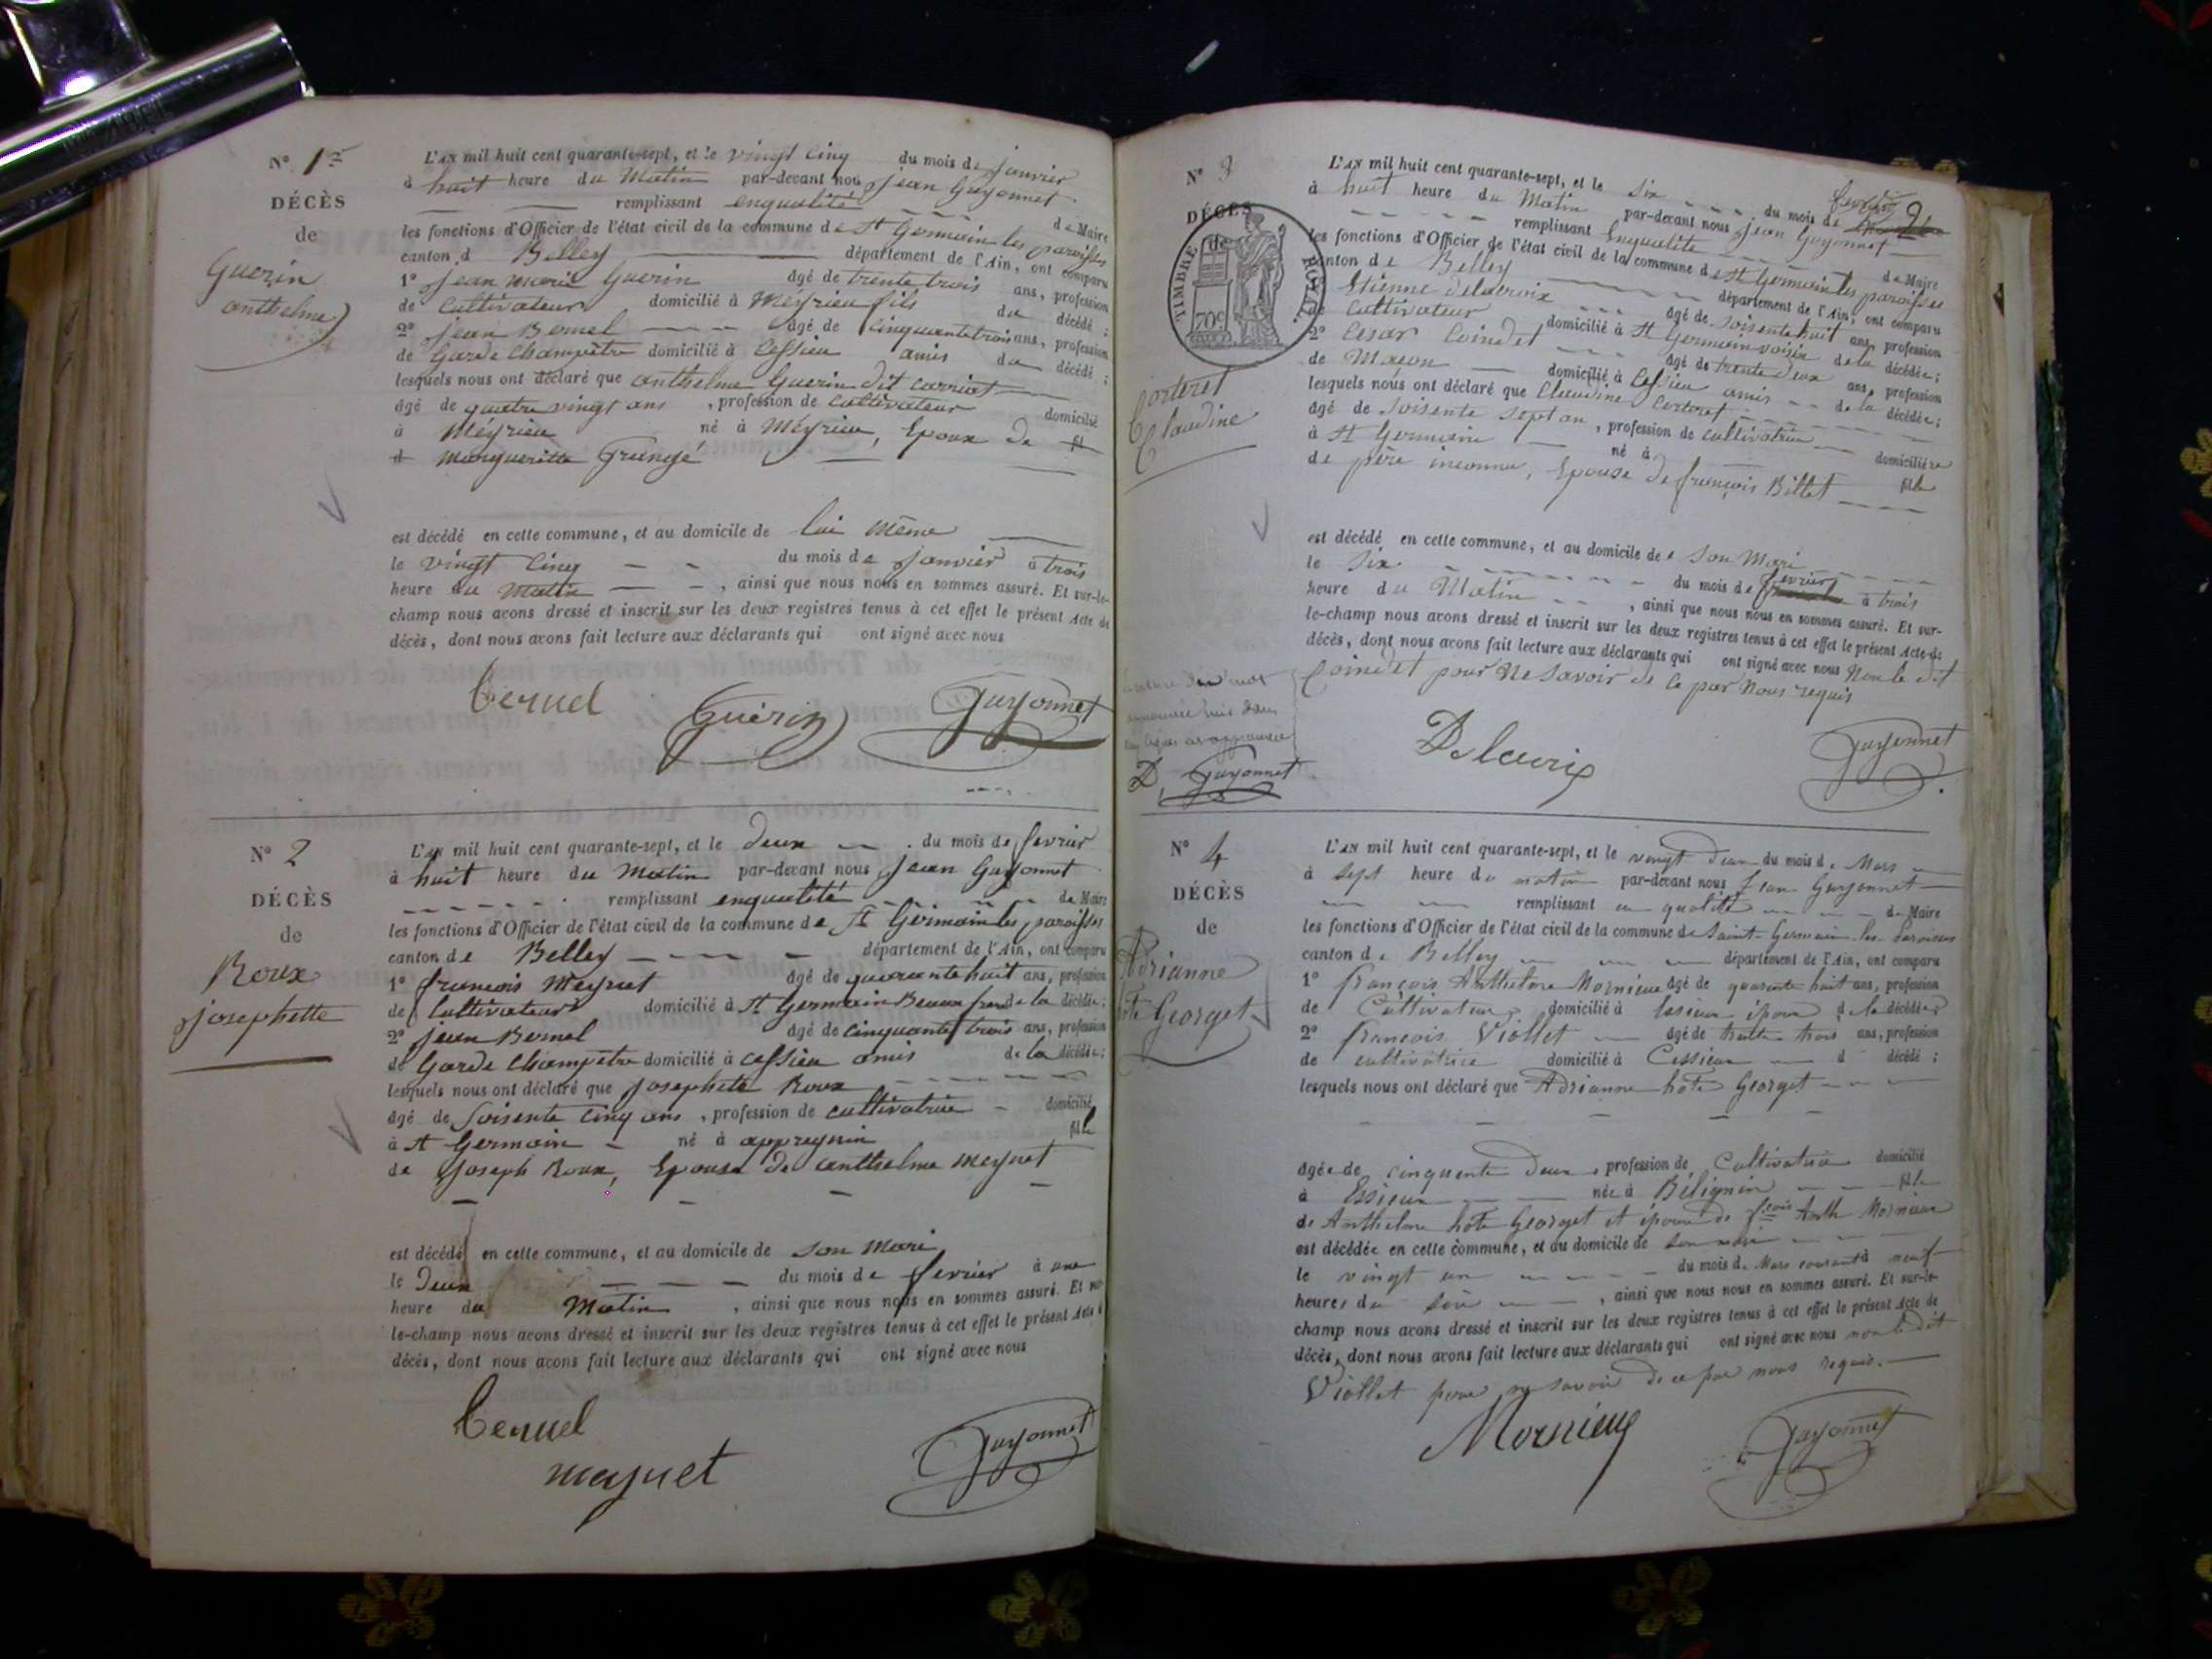 N° 1er
DÉCÈS
de
Guerin
anthelme
L'AN mil huit cent quarante-sept, et le vingt cinq du mois de janvier
à huit heure du Matin par-devant nous jean Guyonnet
remplissant enqualité de Maire
les fonctions d'Officier de l'état civil de la commune de St Germain les paroisses
canton d Belley département de l'Ain, ont comparu
1° jean marie Guerin âgé de trente trois ans, profession
de Cultivateur domicilié à Meyrieu fils du décédé ;
2° jean Bernel âgé de cinquante trois ans, profession
de Garde Champetre domicilié à Cessieu amis du décédé ;
lesquels nous ont déclaré que anthelme Guerin dit
âgé de quatre vingt ans , profession de cultivateur domicilié
à Meyrieu né à Meyrieu, Epoux de fil
d marguerite Grange
est décédé en cette commune, et au domicile de lui même
le vingt cinq du mois de janvier à trois
heure du matin , ainsi que nous nous en sommes assuré. Et sur-le-
champ nous avons dressé et inscrit sur les deux registres tenus à cet effet le présent Acte de
décès, dont nous avons fait lecture aux déclarants qui ont signé avec nous
Guérin Guyonnet
N° 2
DÉCÈS
de
Roux
josephette
L'AN mil huit cent quarante-sept, et le deux du mois de fevrier
à huit heure du Matin par-devant nous jean Guyonnet
remplissant enqualité de Maire
les fonctions d'Officier de l'état civil de la commune de St Germain les paroisses
canton de Belley département de l'Ain, ont comparu
1° francois Meynet âgé de quarante huit ans, profession
de Cultivateur domicilié à St Germain Beaux frere de la décédée ;
2° jean Bernel âgé de cinquante trois ans, profession
de Garde Champetre domicilié à cessieu amis de la décédée ;
lesquels nous ont déclaré que josephete Roux
âgé de soisente cinq ans , profession de cultivatrice domicilié
à St Germain né à appregnin fille
de joseph Roux, Epouse de anthelme meynet
est décédé en cette commune, et au domicile de son Mari
le Deux du mois de fevrier à une
heure du Matin , ainsi que nous nous en sommes assuré. Et sur-
le-champ nous avons dressé et inscrit sur les deux registres tenus à cet effet le présent Acte
décès, dont nous avons fait lecture aux déclarants qui ont signé avec nous
meynet Guyonnet
N° 3
DÉCÈS
de
TIMBRE ROYAL
70c
Corteret
Claudine
2
L'AN mil huit cent quarante-sept, et le six du mois de fevrier
à huit heure du Matin par-devant nous jean Guyonnet
remplissant Enqualité de Maire
les fonctions d'Officier de l'état civil de la commune de St Germain les paroisses
canton de Belley département de l'Ain, ont comparu
Etienne delacroix âgé de soisente huit ans, profession
de cultivateur domicilié à St Germain voisin de la décédée ;
2° Cesar Coindet âgé de trente deux ans, profession
de Maçon domicilié à Cessieu amis de la décédée ;
lesquels nous ont déclaré que Claudine Corteret
âgé de soisente sept an , profession de cultivatrice domiciliée
à St Germain né à fille
de père inconnu, Epouse de françois Billet
est décédé en cette commune, et au domicile de son Mari
le Six du mois de fevrier à trois
heure du Matin , ainsi que nous nous en sommes assuré. Et sur-
le-champ nous avons dressé et inscrit sur les deux registres tenus à cet effet le présent Acte de
décès, dont nous avons fait lecture aux déclarants qui ont signé avec nous Non le dit
Coindet pour ne savoir de ce par nous requis
D. Guyonnet
Guyonnet
N° 4
DÉCÈS
de
Adrianne
hôte Georget
L'AN mil huit cent quarante-sept, et le vingt deux du mois de Mars
à sept heure du matin par-devant nous Jean Guyonnet
remplissant en qualité de Maire
les fonctions d'Officier de l'état civil de la commune de Saint-Germain-les-Paroisses
canton de Belley département de l'Ain, ont comparu
1° françois Anthelme Mornieux âgé de quarante huit ans, profession
de Cultivateur domicilié à Cessieux époux de la décédée
2° françois Viollet âgé de trente trois ans, profession
de cultivatrice domicilié à Cessieux d décédé ;
lesquels nous ont déclaré que Adrianne hôte Georget
âgée de cinquante deux , profession de Cultivatrice domicilié
à Essieux née à Bélignin fille
de Anthelme hôte Georget et épouse de fcois Anth Mornieux
est décédée en cette commune, et au domicile de son mari
le vingt un du mois de Mars courant à neuf
heures du soir , ainsi que nous nous en sommes assuré. Et sur-le-
champ nous avons dressé et inscrit sur les deux registres tenus à cet effet le présent Acte de
décès, dont nous avons fait lecture aux déclarants qui ont signé avec nous non le dit
Viollet pour ne savoir de ce par nous requis.
Mornieux Guyonnet